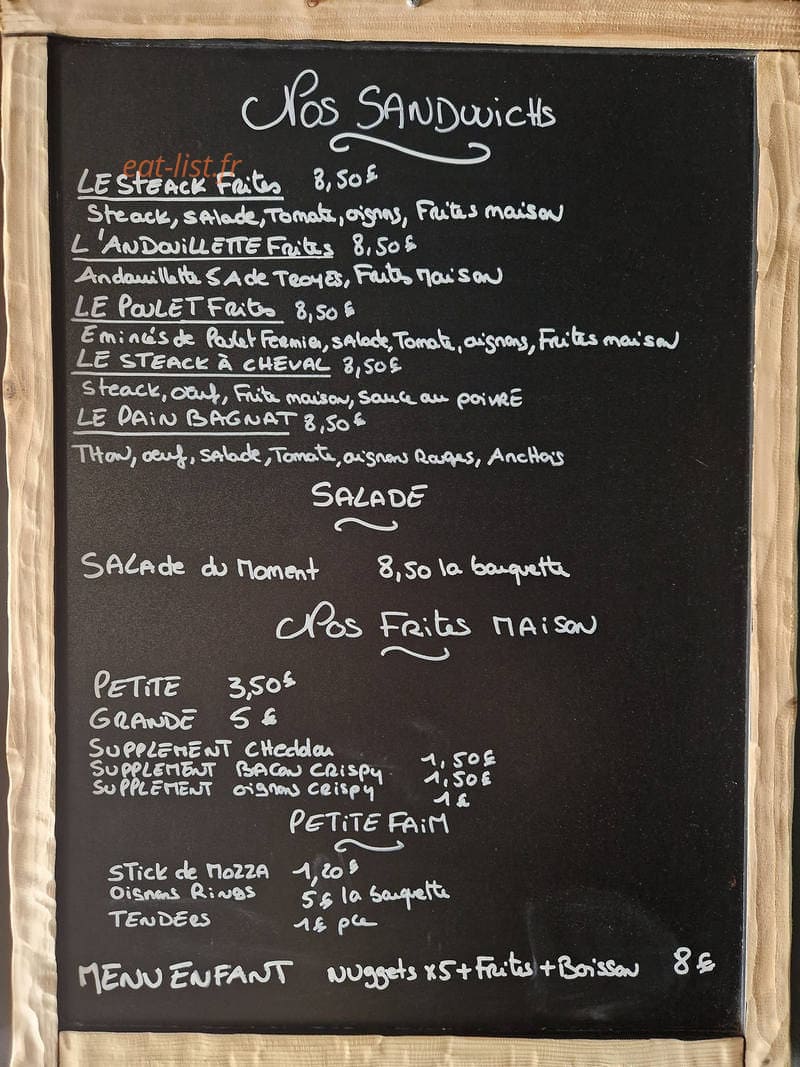 Nos SANDWICHS
eat-list.fr
LE STEACK Frites 8,50€
Steack, salade, Tomate, oignons, Frites maison
L'ANDOUILLETTE Frites 8,50€
Andouillette 5A de TROYES, Frites Maison
LE POULET Frites 8,50€
Emincés de Poulet Fermier, salade, Tomate, oignons, Frites maison
LE STEACK À CHEVAL 8,50€
Steack, œuf, Frite maison, sauce au POIVRE
LE PAIN BAGNAT 8,50€
THON, œuf, salade, Tomate, oignons Rouges, Anchois
SALADE
SALAde du Moment 8,50 la barquette
Nos Frites MAISON
PETITE 3,50€
GRANDE 5€
SUPPLEMENT CHeddar 1,50€
SUPPLEMENT BACON CRISPY 1,50€
SUPPLEMENT oignons CRISPY 1€
PETITE FAIM
STick de MOZZA 1,20€
Oignons Rings 5€ la barquette
TENDERS 1€ pce
MENU ENFANT Nuggets x5 + Frites + Boisson 8€